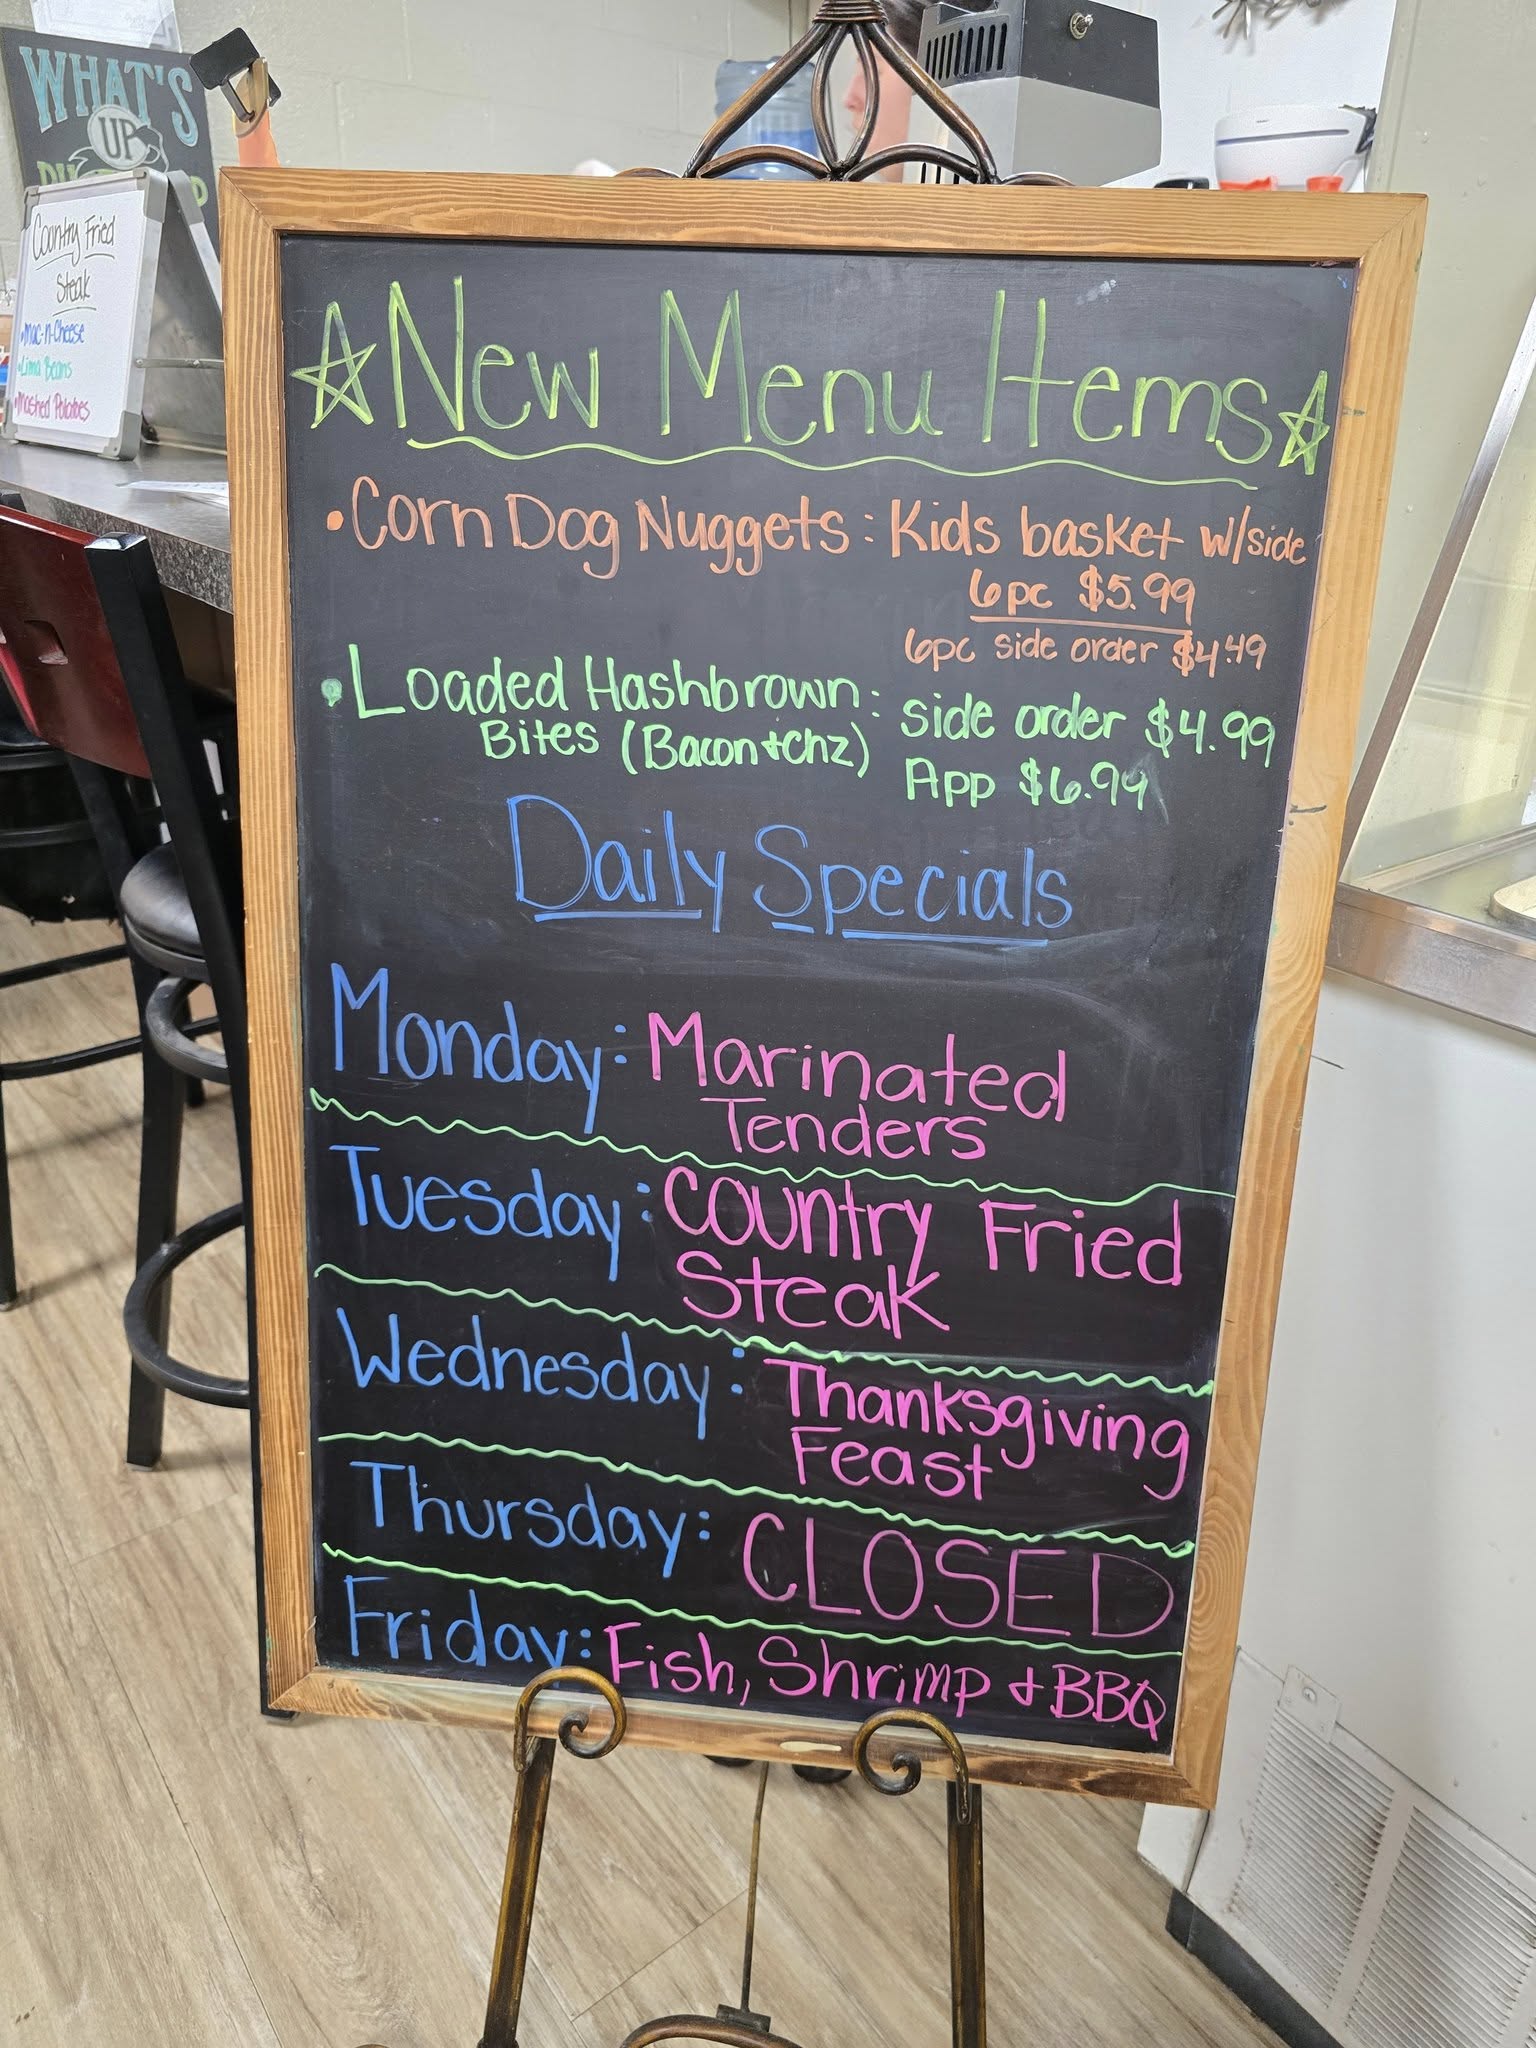 WHAT'S
UP
Country Fried
Steak
•Mac-n-Cheese
•Lima Beans
•Mashed Potatoes
☆New Menu Items☆
•Corn Dog Nuggets: Kids basket w/side
6pc $5.99
6pc side order $4.49
•Loaded Hashbrown: side order $4.99
Bites (Bacon+Chz) App $6.99
Daily Specials
Monday: Marinated
Tenders
Tuesday: Country Fried
Steak
Wednesday: Thanksgiving
Feast
Thursday: CLOSED
Friday: Fish, Shrimp + BBQ